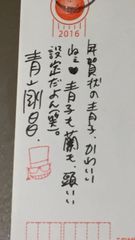 2016
年賀状の青子、かわいい
ねェ♥青子も蘭も、頭いい
設定だよん(笑)。
青山剛昌.